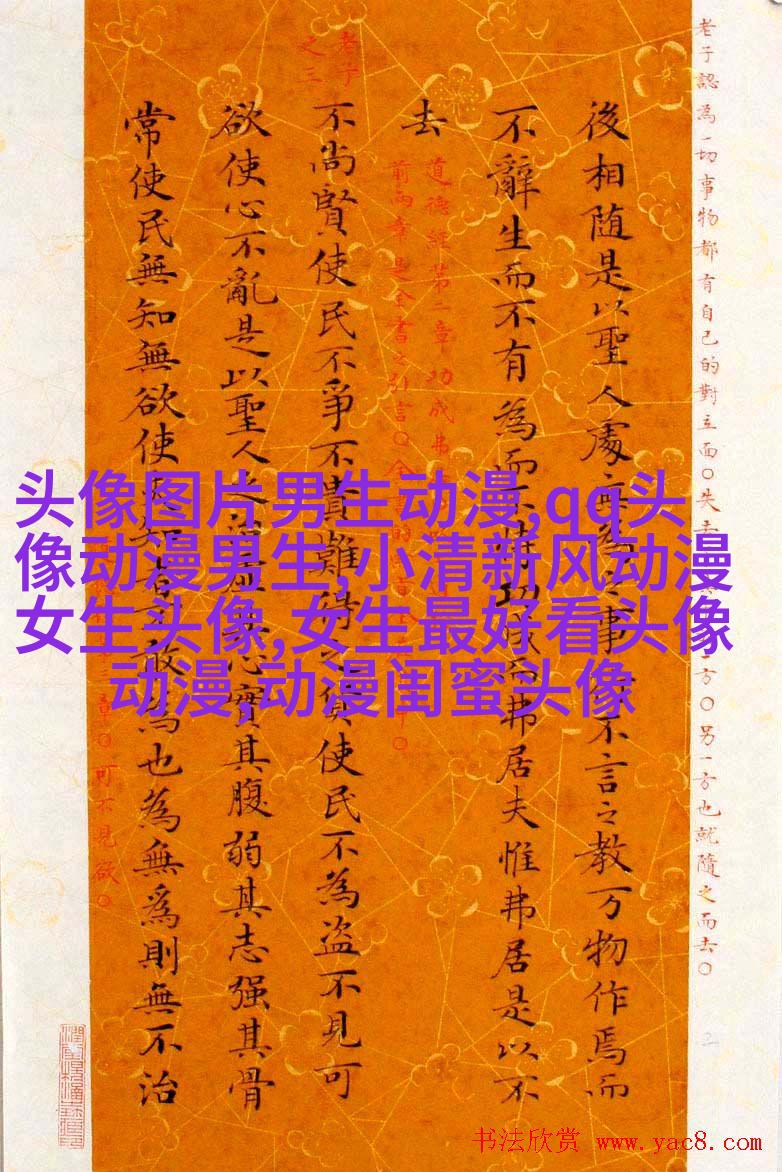 老子認為一切事物都有自己的對立面〇失去 方〇另一方也就隨之而去〇
後相随是以聖人處無為之事 不言之教万物作焉而
不辭生而不有為而不恃功成而弗居夫惟弗居是以不
去
道德經第一章功成弗
前兩章是全書之引言〇全 的
老子
之三
不尚賢使民不爭不貴難得之貨使民不為盗不見可
欲使心不亂是以聖人之治虛其心實其腹弱其志强其骨
常使民無知無欲使夫知者不敢為也為無為則無不治
三章〇可不見欲〇
头像图片男生动漫,qq头
像动漫男生,小清新风动漫
女生头像,女生最好看头像
动漫,动漫闺蜜头像
书法欣赏 www.yac8.com